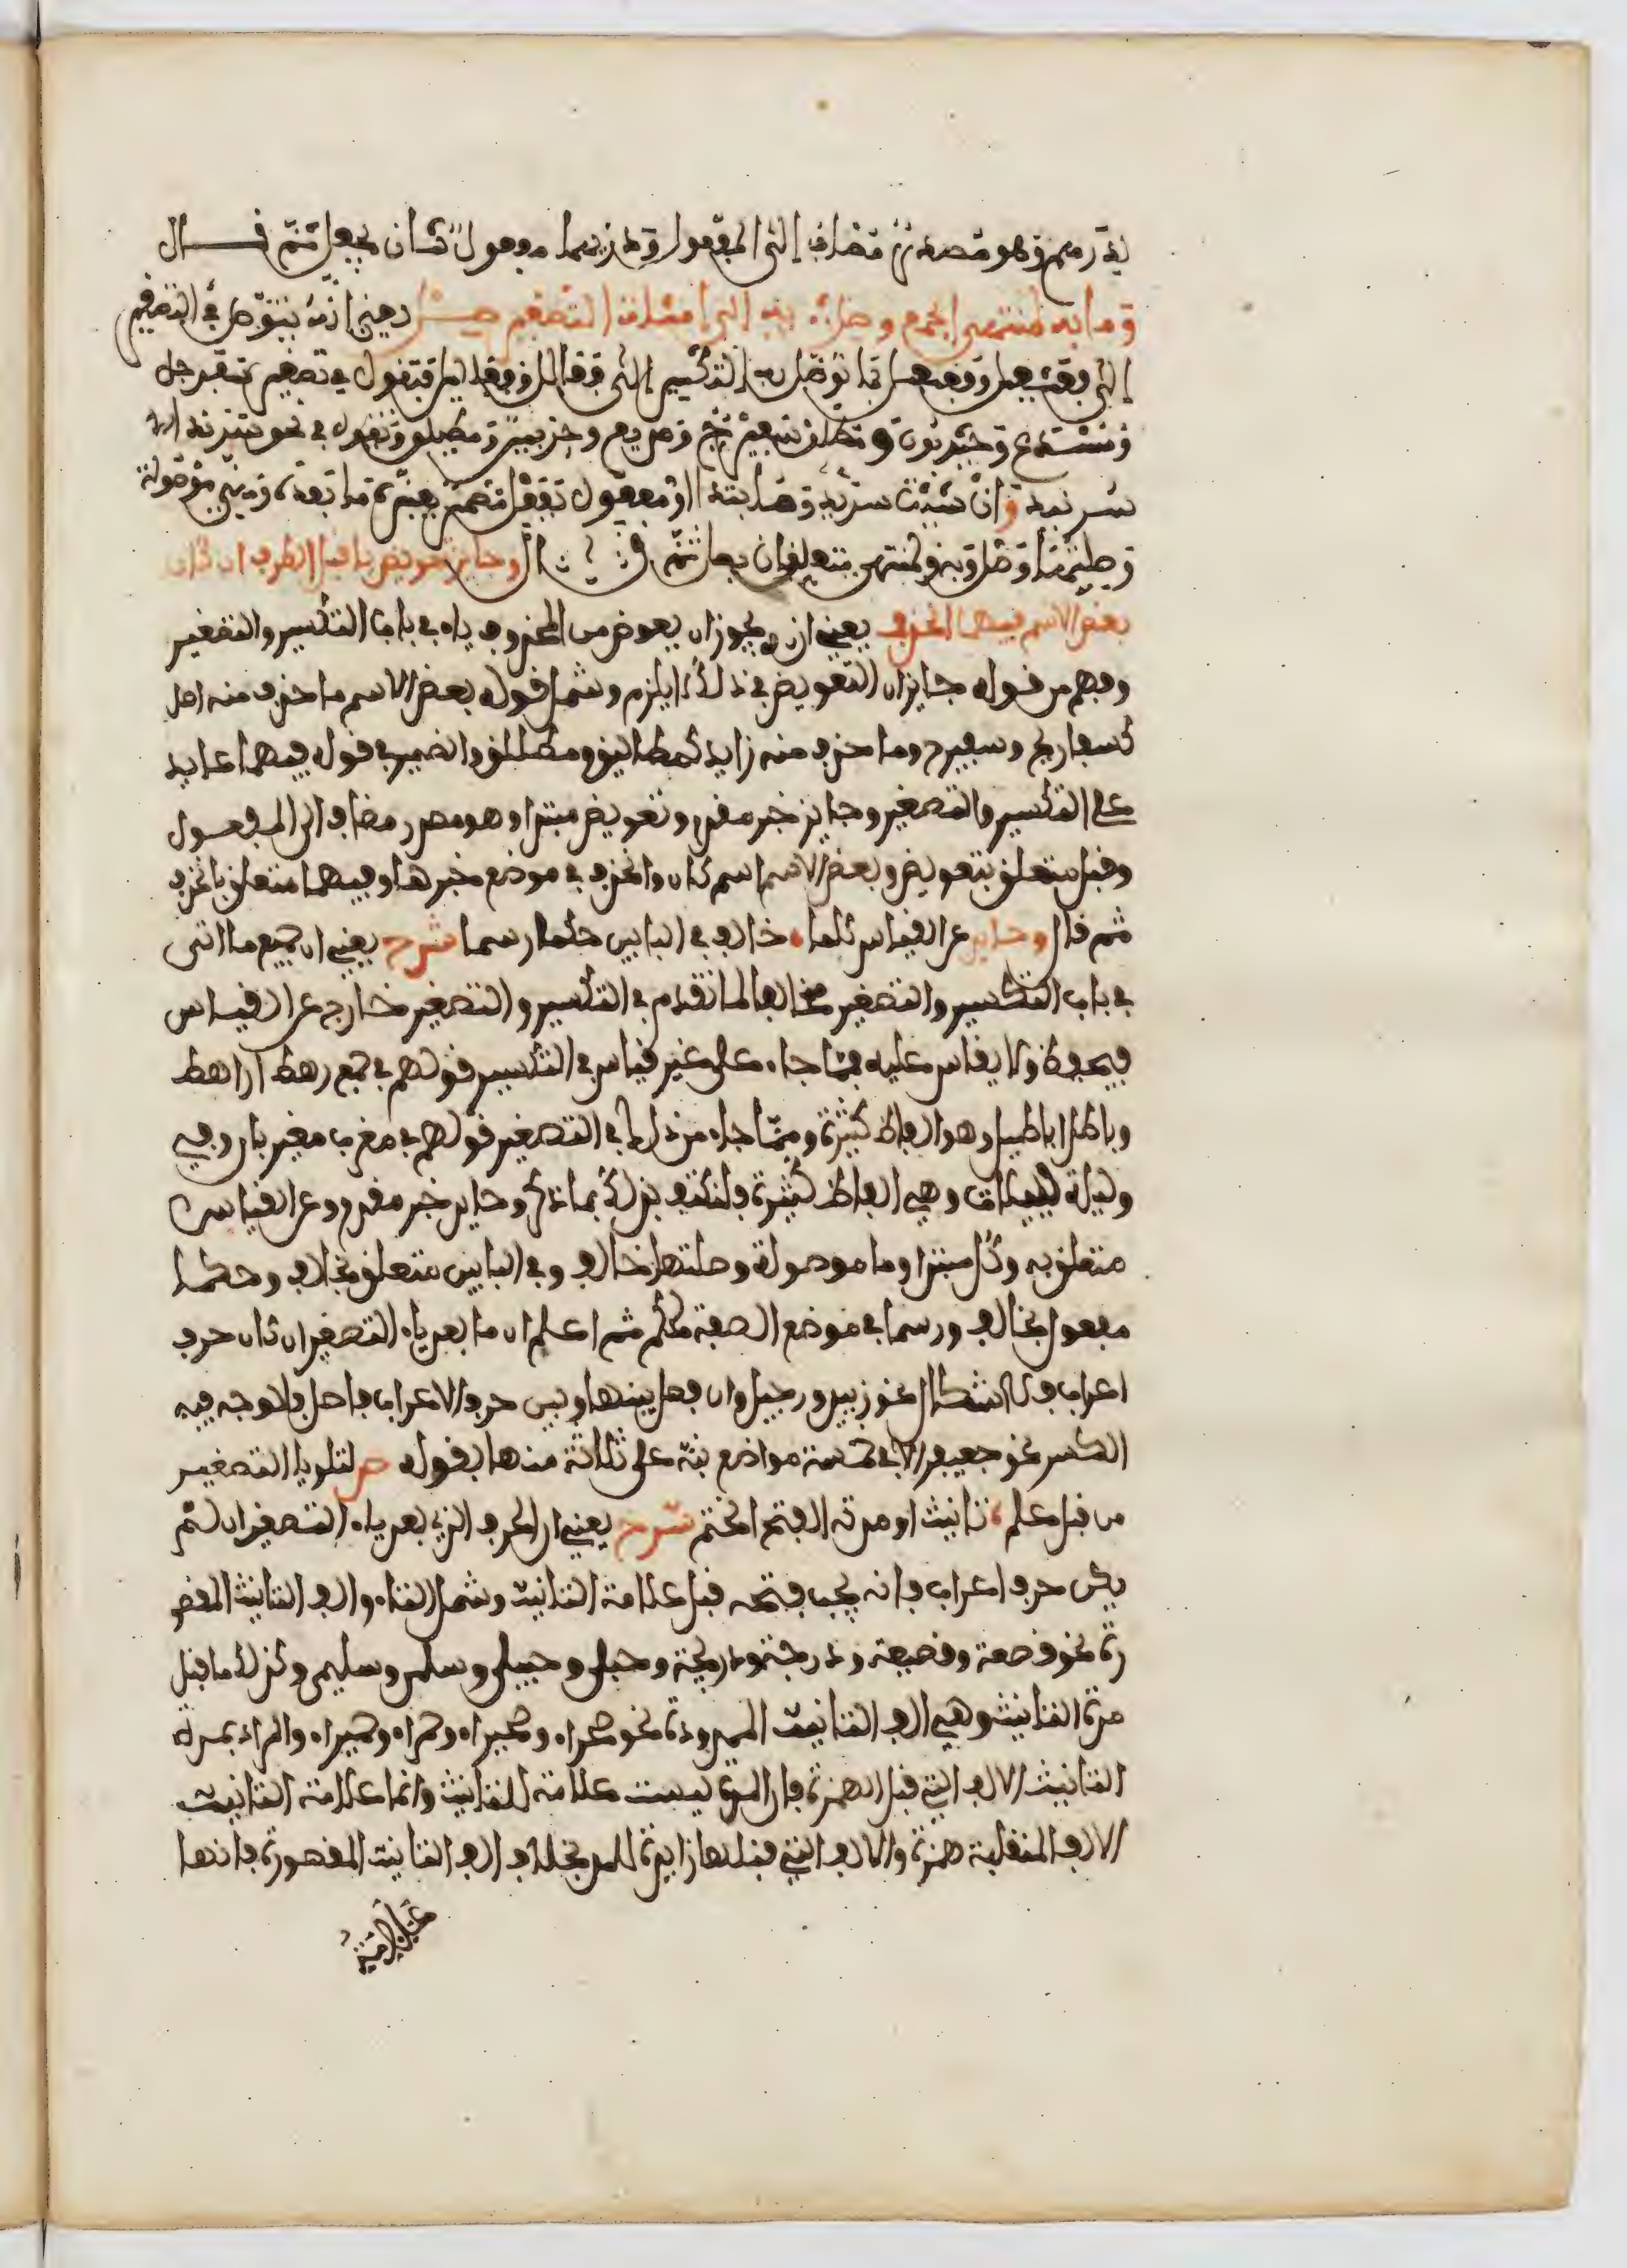 درهم وهو مصدر مضاف إلى المفعول ودريهما مفعول ثان بجعل ثم قال
وما به لمنتهى الجمع وصل به إلى امثلة التصغير صل يعني انه يتوصل في التصغير
إلى فعيعل وفعيعيل بما توصل به التكسير إلى فعالل وفعاليل فتقول في تصغير سفرجل
ومستدع وحيزبون سفيرج ومديع وحزيبين ومطيلق وتقول في نحو سرندا
سريند وان شئت سريد وما مبتدا او مفعول بفعل مضمر يفسره ما بعده وهي موصولة
وصلتها وصل وبه ولمنتهى متعلقان بها ثم قال وجايز تعويض يا قبل الطرف ان كان
بعض الاسم فيهما انحذف يعني انه يجوز ان يعوض من المحذوف ياء في باب التكسير والتصغير
وفهم من قوله جايز ان التعويض في ذلك لا يلزم وشمل قوله بعض الاسم ما حذف منه اصل
كسفاريج وسفيريج وما حذف منه زايد كمطاليق ومطيليق والضمير في قوله فيهما عايد
على التكسير والتصغير وجايز خبر مقدم وتعويض مبتدا وهو مصدر مضاف الى المفعول
وقبل متعلق بتعويض وبعض الاسم اسم كان وانحذف في موضع خبرها وفيهما متعلق بانحذف
ثم قال وحايد عن القياس كلما خالف في البابين حكما رسما شرح يعني ان جميع ما اتى
في باب التكسير والتصغير مخالفا لما تقدم في التكسير والتصغير خارج عن القياس
فيحفظ ولا يقاس عليه فمما جاء على غير قياس في التكسير قولهم في جمع رهط اراهط
وباطل اباطيل وهو الفاظ كثيرة ومما جاء من ذلك في التصغير قولهم في مغرب مغيربان وفي
وليلة لييلات وهي الفاظ كثيرة ولنكتف بذلك بما ذكر وحايد خبر مقدم وعن القياس
متعلق به وكل مبتدا وما موصولة وصلتها خالف وفي البابين متعلق بخالف وحكما
مفعول بخالف ورسما في موضع الصفة لحكم ثم اعلم ان ما بعد ياء التصغير ان كان حرف
اعراب فلا اشكال نحو زبيد ورجيل وان فصل بينها وبين حرف الاعراب فاصل فلا وجه فيه
الكسر نحو جعيفر الا في خمسة مواضع نبه على ثلاثة منها بقوله ص لتلو يا التصغير
من قبل علم تانيث او مدته الفتح انحتم شرح يعني ان الحرف الذي بعد ياء التصغير ان لم
يكن حرف اعراب فانه يجب فتحه قبل علامة التانيث وشمل التاء والف التانيث المقصو
رة نحو قصعة وقصيعة ودرجة ودريجة وحبلى وحبيلى وسلمى وسليمى وكذلك ما قبل
مدة التانيث وهي الف التانيث الممدودة نحو صحراء وصحيراء وحمراء وحميراء والمراد بمدة
التانيث الالف التي قبل الهمزة فان المدة ليست علامة للتانيث وانما علامة التانيث
الالف المنقلبة همزة والالف التي قبلها زايدة للمد بخلاف الف التانيث المقصورة فانها